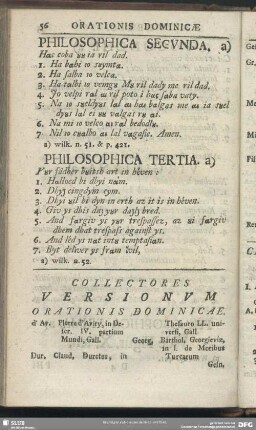 56 ORATIONIS DOMINICÆ
PHILOSOPHICA SECVNDA. a)
Hai coba ȣȣ ia ril dad.
1. Ha babi io sȣymta.
2. Ha salba io velca.
3. Ha talbi io vemgȣ. Mȣ ril dady me ril dad.
4. Io velpi ral ai ril poto i hai saba vaty.
5. Na io sȣeldyȣs lal ai hai balgas me ai ia sȣel
dyȣs lal ei ȣȣ valgas rȣ ai.
6. Na mi io velco ai ral bedodlȣ.
7. Nil io cȣalbo ai lal vagasie. Amen.
a) wilk. n. 51. & p. 421.
PHILOSOPHICA TERTIA. a)
Yȣr fádher hȣitsh art in héven:
1. Halloed bi dhyi nám.
2. Dhyi cingdym cym.
3. Dhyi ȣil bi dyn in erth az it is in héven.
4. Giv ys dhis dai yȣr dayli bred.
5. And fargiv ys yȣr trespassez, az ȣi fargiv
dhem dhat trespass against ys.
6. And lid ys nat intȣ temptasian.
7. Byt deliver ys fram ivil.
a) wilk. n. 52.
COLLECTORES
VERSIONVM
ORATIONIS DOMINICAE.
d'Av. Pierre d'Avity, in De-
scr. IV. partium
Mundi, Gall.
Dur. Claud. Duretus, in
Thesauro LL. uni-
versi, Gall.
Georg. Barthol. Georgieviz,
in l. de Moribus
Turcarum
Gesn.